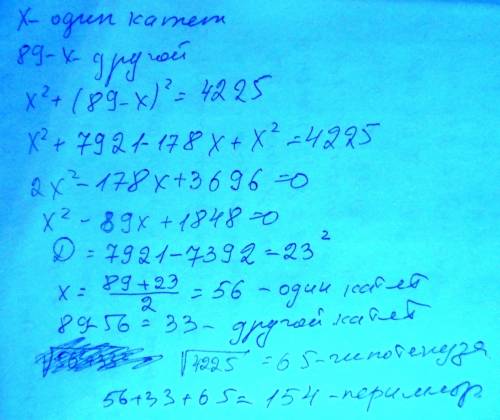 x- один катет
89-x- другой
x² + (89-x)² = 4225
x² + 7921-178x + x² = 4225
2x² - 178x + 3696 = 0
x² - 89x + 1848 = 0
D = 7921-7392 = 23²
x = (89+23)/2 = 56 - один катет
89-56 = 33 - другой катет
√4225 = 65-гипотенуза
56+33+65 = 154-периметр